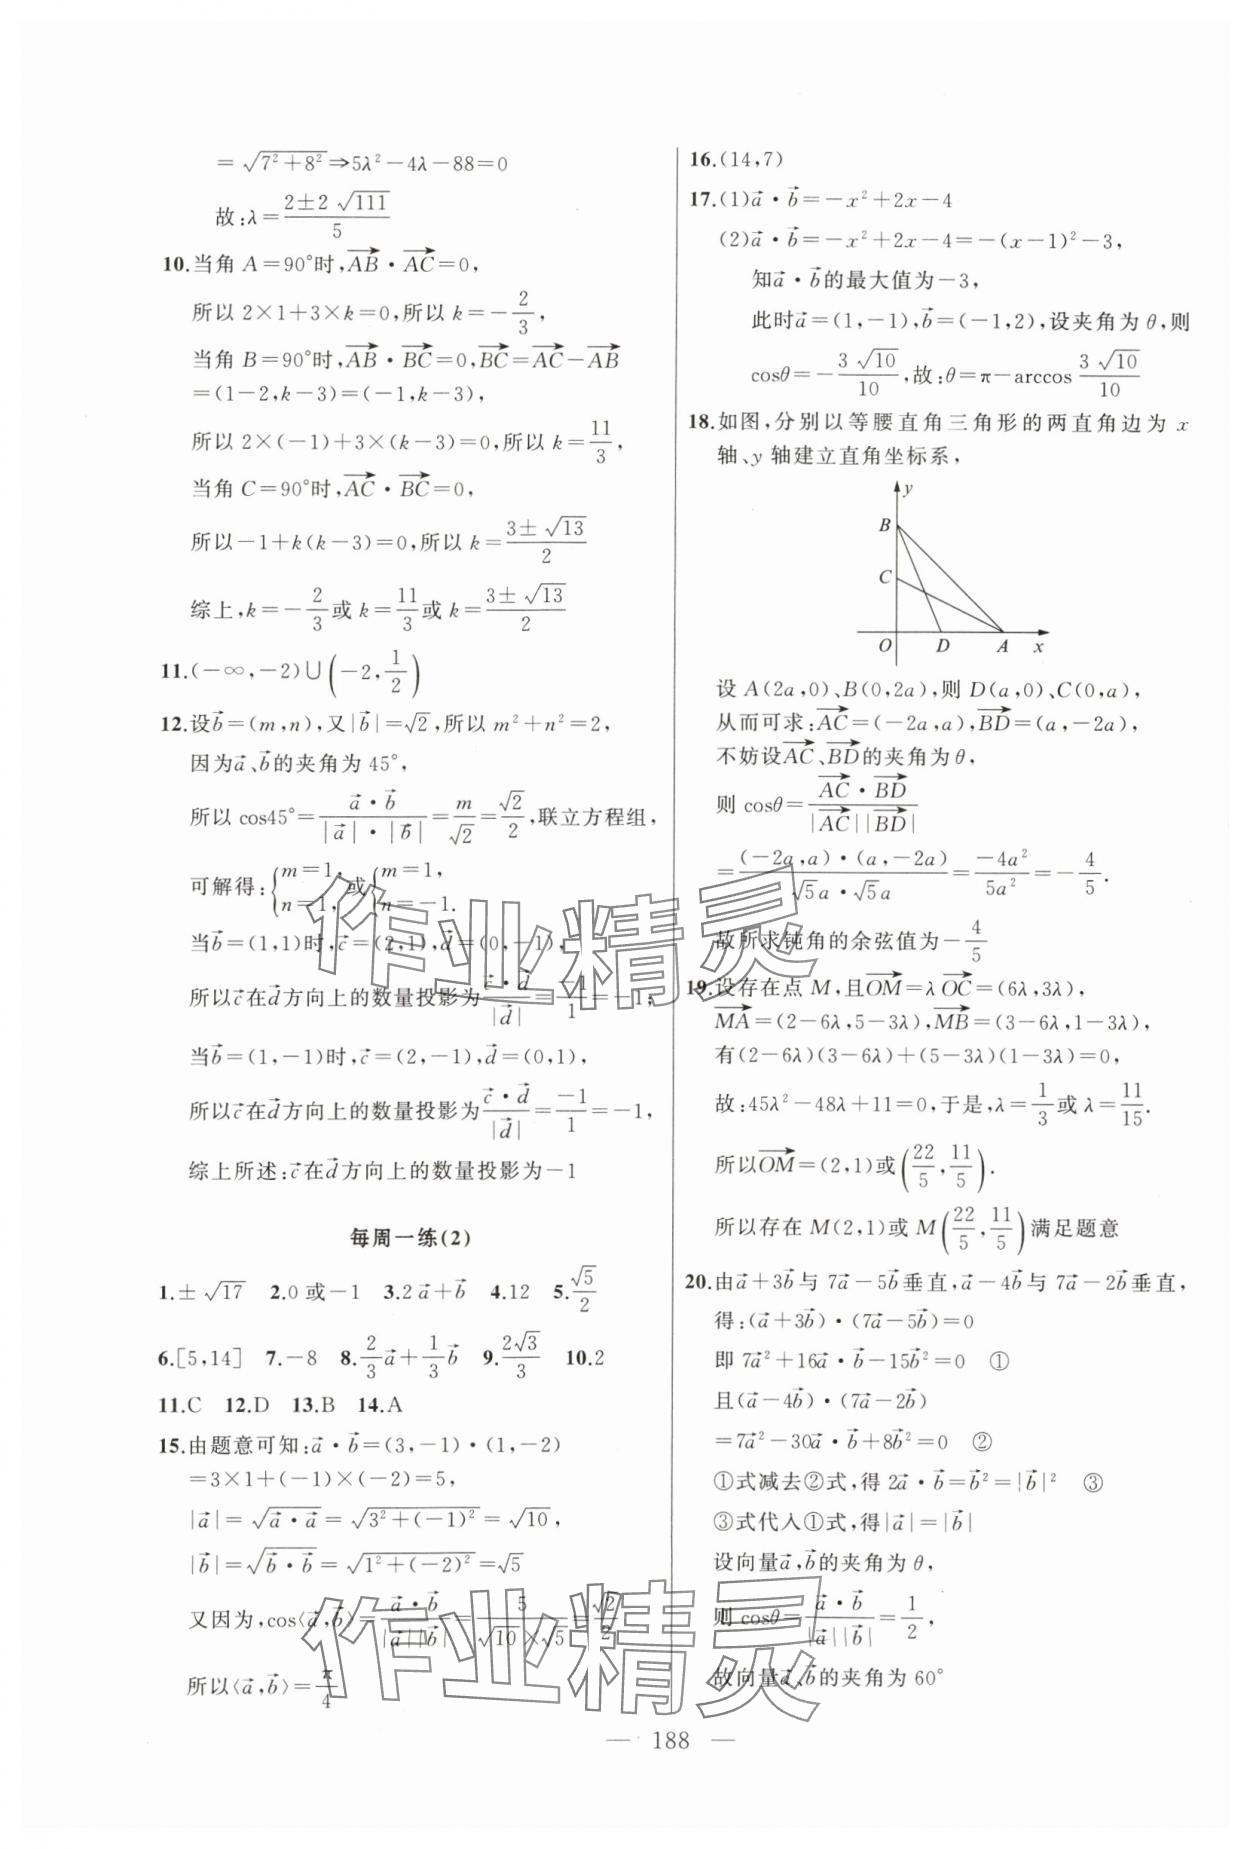 =√(7²+8²)⇒5λ²-4λ-88=0
故:λ=(2±2√111)/5
10.当角 A=90°时,→AB·→AC=0,
所以 2×1+3×k=0,所以 k=-2/3,
当角 B=90°时,→AB·→BC=0,→BC=→AC-→AB
=(1-2,k-3)=(-1,k-3),
所以 2×(-1)+3×(k-3)=0,所以 k=11/3,
当角 C=90°时,→AC·→BC=0,
所以-1+k(k-3)=0,所以 k=(3±√13)/2
综上,k=-2/3或 k=11/3或 k=(3±√13)/2
11.(-∞,-2)∪(-2,1/2)
12.设→b=(m,n),又|→b|=√2,所以 m²+n²=2,
因为→a、→b的夹角为 45°,
所以 cos45°=(→a·→b)/(|→a|·|→b|)=m/√2=√2/2,联立方程组,
可解得:{m=1,n=1,或{m=1,n=-1.
当→b=(1,1)时,→c=(2,1),→d=(0,-1),
所以→c在→d方向上的数量投影为(→c·→d)/|→d|=-1/1=-1;
当→b=(1,-1)时,→c=(2,-1),→d=(0,1),
所以→c在→d方向上的数量投影为(→c·→d)/|→d|=-1/1=-1,
综上所述:→c在→d方向上的数量投影为-1
每周一练(2)
1.±√17 2.0 或-1 3.2→a+→b 4.12 5.√5/2
6.[5,14] 7.-8 8.2/3→a+1/3→b 9.2√3/3 10.2
11.C 12.D 13.B 14.A
15.由题意可知:→a·→b=(3,-1)·(1,-2)
=3×1+(-1)×(-2)=5,
|→a|=√(→a·→a)=√(3²+(-1)²)=√10,
|→b|=√(→b·→b)=√(1²+(-2)²)=√5
又因为,cos⟨→a,→b⟩=(→a·→b)/(|→a||→b|)=5/(√10×√5)=√2/2
所以⟨→a,→b⟩=π/4
16.(14,7)
17.(1)→a·→b=-x²+2x-4
(2)→a·→b=-x²+2x-4=-(x-1)²-3,
知→a·→b的最大值为-3,
此时→a=(1,-1),→b=(-1,2),设夹角为 θ,则
cosθ=-3√10/10,故:θ=π-arccos 3√10/10
18.如图,分别以等腰直角三角形的两直角边为 x
轴、y 轴建立直角坐标系,
y
B
C
O D A x
设 A(2a,0)、B(0,2a),则 D(a,0)、C(0,a),
从而可求:→AC=(-2a,a),→BD=(a,-2a),
不妨设→AC、→BD的夹角为 θ,
则 cosθ=(→AC·→BD)/(|→AC||→BD|)
=((-2a,a)·(a,-2a))/(√5a·√5a)=-4a²/5a²=-4/5.
故所求钝角的余弦值为-4/5
19.设存在点 M,且→OM=λ→OC=(6λ,3λ),
→MA=(2-6λ,5-3λ),→MB=(3-6λ,1-3λ),
有(2-6λ)(3-6λ)+(5-3λ)(1-3λ)=0,
故:45λ²-48λ+11=0,于是,λ=1/3或 λ=11/15.
所以→OM=(2,1)或(22/5,11/5).
所以存在 M(2,1)或 M(22/5,11/5)满足题意
20.由→a+3→b与 7→a-5→b垂直,→a-4→b与 7→a-2→b垂直,
得:(→a+3→b)·(7→a-5→b)=0
即 7→a²+16→a·→b-15→b²=0 ①
且(→a-4→b)·(7→a-2→b)
=7→a²-30→a·→b+8→b²=0 ②
①式减去②式,得 2→a·→b=→b²=|→b|² ③
③式代入①式,得|→a|=|→b|
设向量→a,→b的夹角为 θ,
则 cosθ=(→a·→b)/(|→a||→b|)=1/2,
故向量→a、→b的夹角为 60°
作业精灵
作业精灵
— 188 —